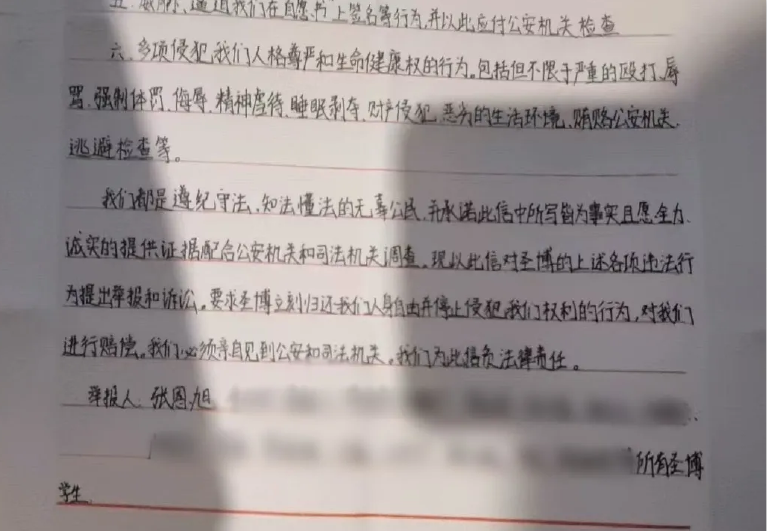 五. 威胁、逼迫我们在自愿书上签名等行为,并以此应付公安机关检查
六、多项侵犯我们人格尊严和生命健康权的行为。包括但不限于严重的殴打、辱
骂、强制体罚、侮辱、精神虐待、睡眠剥夺、财产侵犯、恶劣的生活环境、贿赂公安机关、
逃避检查等。
我们都是遵纪守法、知法懂法的无辜公民,并承诺此信中所写皆为事实且愿全力、
诚实的提供证据配合公安机关和司法机关调查。现以此信对圣博的上述各项违法行
为提出举报和诉讼。要求圣博立刻归还我们人身自由并停止侵犯我们权利的行为,对我们
进行赔偿。我们必须亲自见到公安和司法机关。我们为此信负法律责任。
举报人: 张恩旭
所有圣博
学生